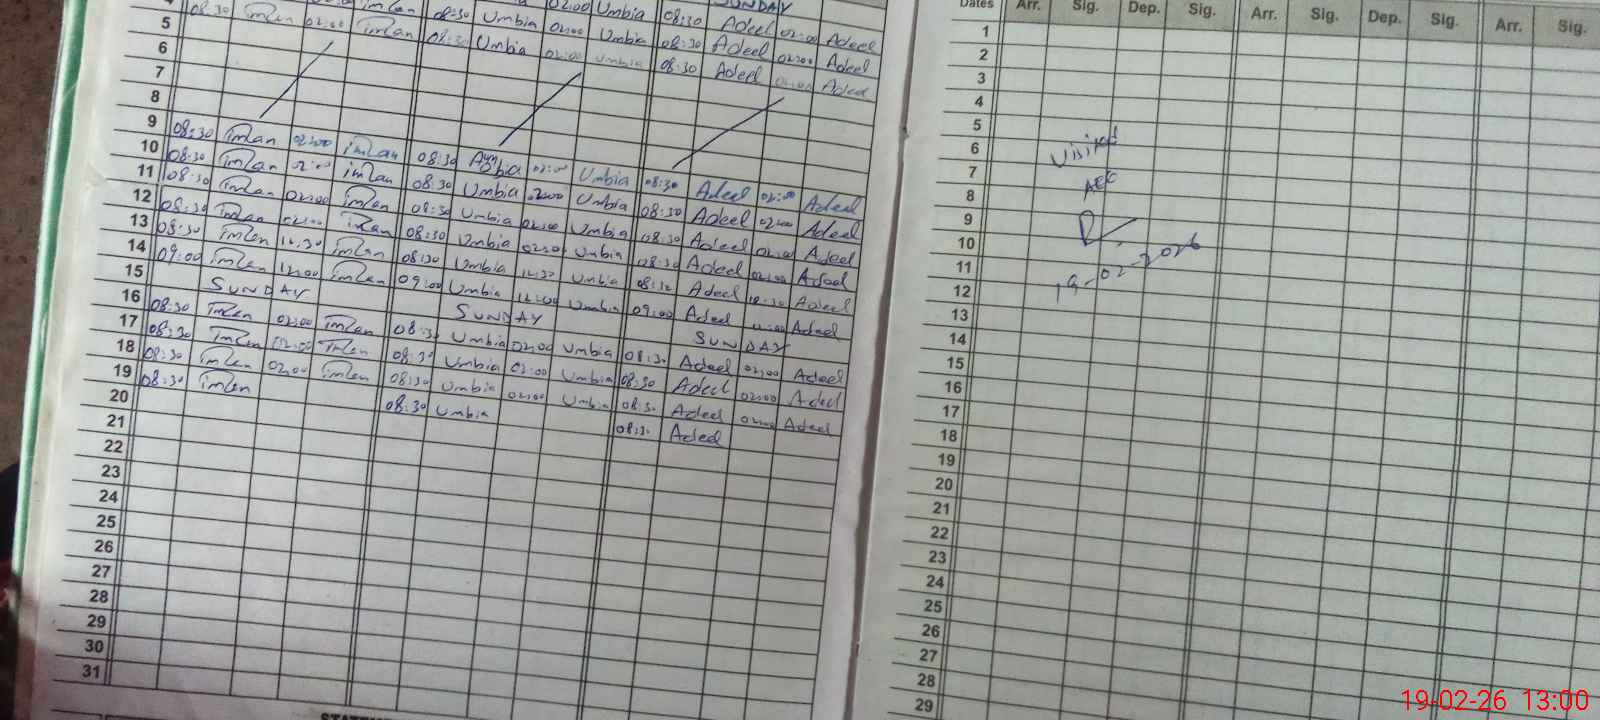 SUNDAY
02:00 Umbia 08:30 Adeel 02:00 Adeel
4 08:30 imran 02:00 imran 08:30 Umbia 02:00 Umbia 08:30 Adeel 02:00 Adeel
5
6
7
8
9 08:30 imran 02:00 imran 08:30 Umbia 02:00 Umbia 08:30 Adeel 02:00 Adeel
10 08:30 imran 02:00 imran 08:30 Umbia 02:00 Umbia 08:30 Adeel 02:00 Adeel
11 08:30 imran 02:00 imran 08:30 Umbia 02:00 Umbia 08:30 Adeel 02:00 Adeel
12 08:30 imran 02:00 imran 08:30 Umbia 02:00 Umbia 08:30 Adeel 02:00 Adeel
13 08:30 imran 12:30 imran 08:30 Umbia 12:30 Umbia 08:30 Adeel 12:30 Adeel
14 09:00 imran 12:00 imran 09:00 Umbia 12:00 Umbia 09:00 Adeel 12:00 Adeel
15 SUNDAY SUNDAY SUNDAY
16 08:30 imran 02:00 imran 08:30 Umbia 02:00 Umbia 08:30 Adeel 02:00 Adeel
17 08:30 imran 02:00 imran 08:30 Umbia 02:00 Umbia 08:30 Adeel 02:00 Adeel
18 08:30 imran 02:00 imran 08:30 Umbia 02:00 Umbia 08:30 Adeel 02:00 Adeel
19 08:30 imran 08:30 Umbia 08:30 Adeel
20
21
22
23
24
25
26
27
28
29
30
31
Dates Arr. Sig. Dep. Sig. Arr. Sig. Dep. Sig. Arr. Sig.
1
2
3
4
5
6 Visited
7
8
9
10
11
12 19-02-2026
13
14
15
16
17
18
19
20
21
22
23
24
25
26
27
28
29
19-02-26 13:00